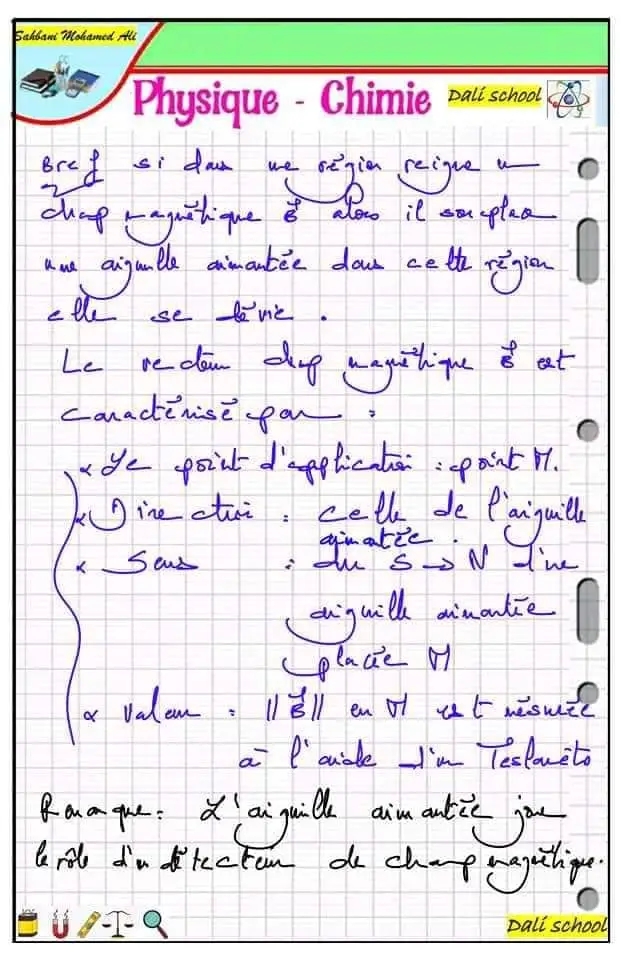 Sahbani Mohamed Ali
Physique - Chimie Dali school
Bref si dans une région reigne un
champ magnétique B⃗ alors il on place
une aiguille aimantée dans cette région
elle se dévie .
Le vecteur champ magnétique B⃗ est
caractérisé par :
× Le point d'application : point M.
× Direction : celle de l'aiguille
aimantée .
× Sens : du S → N d'une
aiguille aimantée
placée M
× Valeur : ||B⃗|| en M est mésurée
à l'aide d'un Teslamètre
Remarque : L'aiguille aimantée joue
le rôle d'un détecteur de champ magnétique.
Dali school